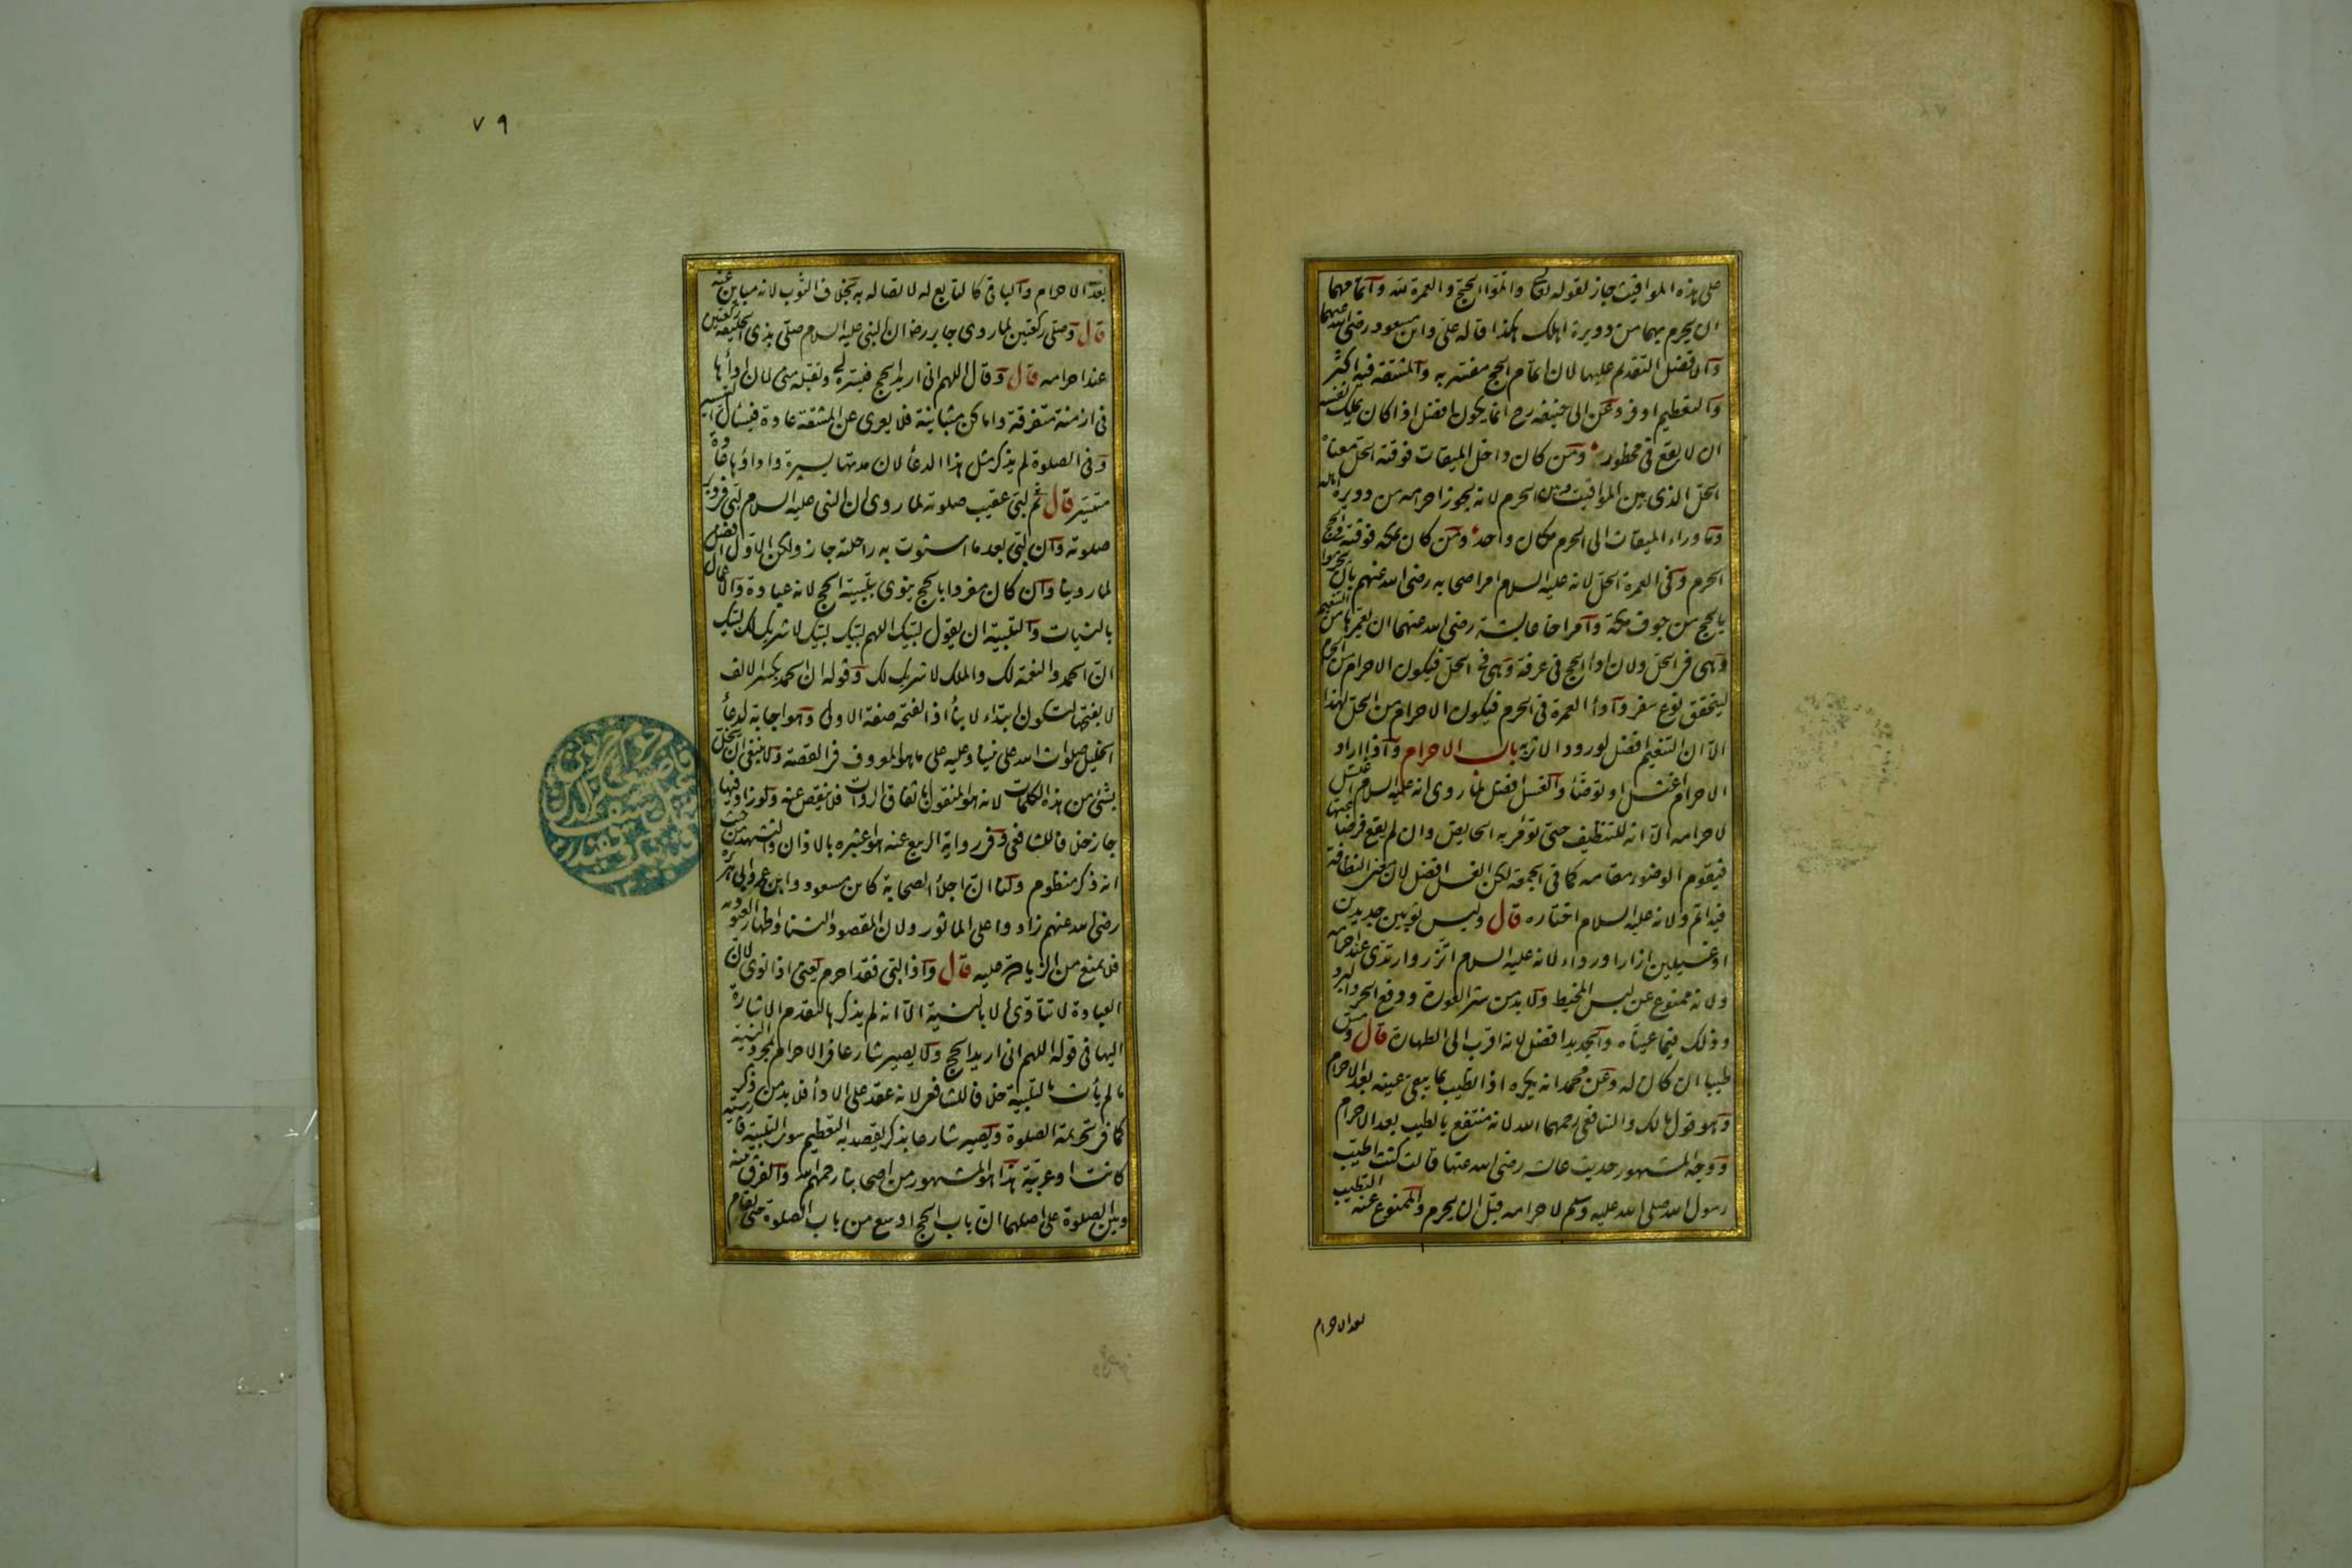 على هذه المواقيت جاز لقوله تعالى واتموا الحج والعمرة لله واتمامهما
ان يحرم بهما من دويرة اهلك هكذا قاله على وابن مسعود رضى الله عنهما
والافضل التقديم عليها لان اتمام الحج مفسر به والمشقة فيه اكثر
والتعظيم اوفر وعن ابى حنيفة رح انما يكون افضل اذا كان يملك نفسه
ان لا يقع فى محظور ومن كان داخل الميقات فوقته الحل معناه
الحل الذى بين المواقيت وبين الحرم لانه يجوز احرامه من دويرة اهله
وما وراء الميقات الى الحرم مكان واحد ومن كان بمكة فوقته فى الحج
الحرم وفى العمرة الحل لانه عليه السلام امر اصحابه رضى الله عنهم بان يحرموا
بالحج من جوف مكة وامر اخا عايشة رضى الله عنهما ان يعمرها من التنعيم
وهى فى الحل ولان اداء الحج فى عرفة وهى فى الحل فيكون الاحرام من الحرم
ليتحقق نوع سفر واداء العمرة فى الحرم فيكون الاحرام من الحل لهذا
الا ان التنعيم افضل لورود الاثر به باب الاحرام واذا اراد
الاحرام اغتسل او توضأ والغسل افضل لما روى انه عليه السلام اغتسل
لاحرامه الا انه للتنظيف حتى تؤمر به الحايض وان لم يقع فرضا عنها
فيقوم الوضوء مقامه كما فى الجمعة لكن الغسل افضل لان معنى النظافة
فيه اتم ولانه عليه السلام اختاره قال ولبس ثوبين جديدين
او غسيلين ازارا ورداء لانه عليه السلام اتزر وارتدى عند احرامه
ولانه ممنوع عن لبس المخيط ولا بد من ستر العورة ودفع الحر والبرد
وذلك فيما عيناه والجديد افضل لانه اقرب الى الطهارة قال ومس
طيبا ان كان له وعن محمد انه يكره اذا تطيب بما يبقى عينه بعد الاحرام
وهو قول مالك والشافعى رحمهما الله لانه منتفع بالطيب بعد الاحرام
ووجه المشهور حديث عائشة رضى الله عنها قالت كنت اطيب
رسول الله صلى الله عليه وسلم لاحرامه قبل ان يحرم والممنوع عنه التطيب
بعد الاحرام
٧٩
بعد الاحرام والباقى كالتابع له لاتصاله به بخلاف الثوب لانه مباين عنه
قال وصلى ركعتين لما روى جابر رض ان النبى عليه السلام صلى بذى الحليفة ركعتين
عند احرامه قال وقال اللهم انى اريد الحج فيسره لى وتقبله منى لان اداءها
فى ازمنة متفرقة واماكن متباينة فلا يعرى عن المشقة عادة فيسأل التيسير
وفى الصلوة لم يذكر مثل هذا الدعاء لان مدتها يسيرة واداؤها عادة
متيسر قال ثم لبى عقيب صلوته لما روى ان النبى عليه السلام لبى فى دبر
صلوته وان لبى بعد ما استوت به راحلته جاز ولكن الاول افضل
لما روينا وان كان مفردا بالحج ينوى بتلبيته الحج لانه عبادة والاعمال
بالنيات والتلبية ان يقول لبيك اللهم لبيك لبيك لا شريك لك لبيك
ان الحمد والنعمة لك والملك لا شريك لك وقوله ان الحمد بكسر الالف
لا بفتحها لتكون ابتداء لا بناء اذ الفتحة صفة الاولى وهو اجابة لدعاء
الخليل صلوات الله على نبينا وعليه على ما هو المعروف فى القصة ولا ينبغى ان يخل
بشئ من هذه الكلمات لانه هو المنقول باتفاق الروات فلا ينقص عنه ولو زاد فيها
جاز خلافا للشافعى فى رواية الربيع عنه هو اعتبره بالاذان والتشهد من حيث
انه ذكر منظوم ولنا ان اجلاء الصحابة كابن مسعود وابن عمر وابى هريرة
رضى الله عنهم زادوا على الماثور ولان المقصود الثناء واظهار العبودية
فلا يمنع من الزيادة عليه قال واذا لبى فقد احرم يعنى اذا نوى لان
العبادة لا تتأدى الا بالنية الا انه لم يذكرها لتقدم الاشارة
اليها فى قوله اللهم انى اريد الحج ولا يصير شارعا فى الاحرام بمجرد النية
ما لم يأت بالتلبية خلافا للشافعى لانه عقد على الاداء فلا بد من ذكر
كما فى تحريمة الصلوة ويصير شارعا بذكر يقصد به التعظيم سوى التلبية فارسية
كانت او عربية هذا هو المشهور من اصحابنا رحمهم الله والفرق بينه
وبين الصلوة على اصلهما ان باب الحج اوسع من باب الصلوة حتى يقام